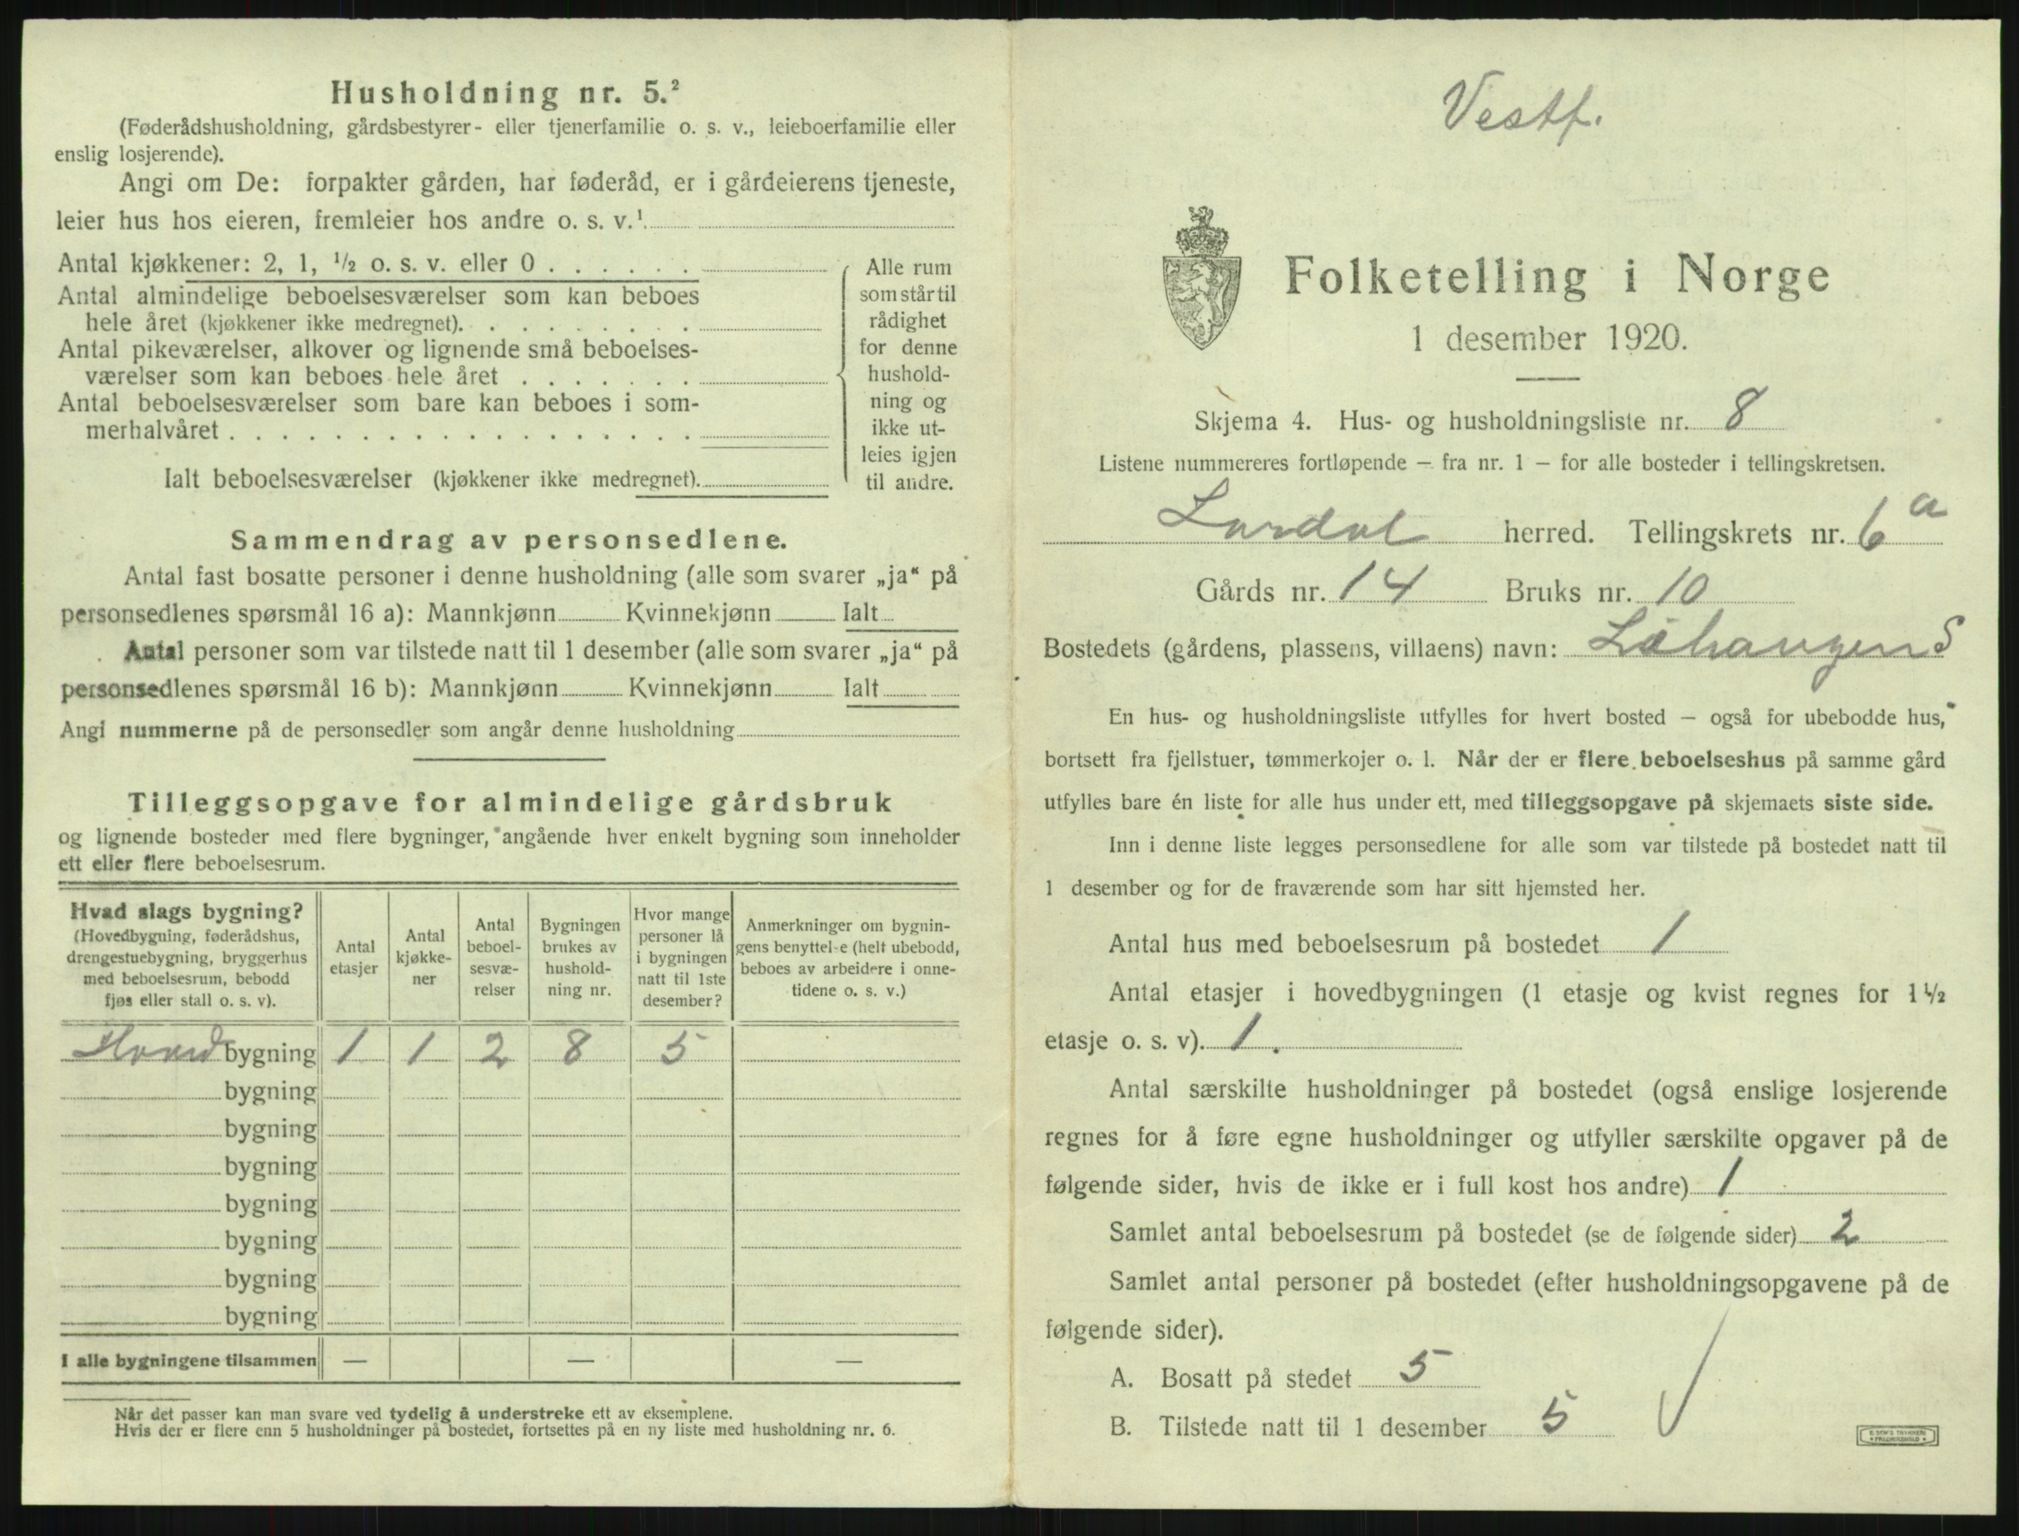 Husholdning nr. 5.²
(Føderådshusholdning, gårdsbestyrer- eller tjenerfamilie o. s. v., leieboerfamilie eller
enslig losjerende).
Angi om De: forpakter gården, har føderåd, er i gårdeierens tjeneste,
leier hus hos eieren, fremleier hos andre o. s. v.¹
Antal kjøkkener: 2, 1, ½ o. s. v. eller 0 . . . . . .
Antal almindelige beboelsesværelser som kan beboes
hele året (kjøkkener ikke medregnet). . . . . . . . .
Antal pikeværelser, alkover og lignende små beboelses-
værelser som kan beboes hele året . . . . . . .
Antal beboelsesværelser som bare kan beboes i som-
merhalvåret . . . . . . . . . . . . . . . . . .
Ialt beboelsesværelser (kjøkkener ikke medregnet).
Alle rum
som står til
rådighet
for denne
hushold-
ning og
ikke ut-
leies igjen
til andre.
Sammendrag av personsedlene.
Antal fast bosatte personer i denne husholdning (alle som svarer „ja“ på
personsedlenes spørsmål 16 a): Mannkjønn Kvinnekjønn Ialt
Antal personer som var tilstede natt til 1 desember (alle som svarer „ja“ på
personsedlenes spørsmål 16 b): Mannkjønn Kvinnekjønn Ialt
Angi nummerne på de personsedler som angår denne husholdning
Tilleggsopgave for almindelige gårdsbruk
og lignende bosteder med flere bygninger, angående hver enkelt bygning som inneholder
ett eller flere beboelsesrum.
Hvad slags bygning?
(Hovedbygning, føderådshus,
drengestuebygning, bryggerhus
med beboelsesrum, bebodd
fjøs eller stall o. s. v).
Antal
etasjer
Antal
kjøkke-
ner
Antal
beboel-
sesvæ-
relser
Bygningen
brukes av
hushold-
ning nr.
Hvor mange
personer lå
i bygningen
natt til 1ste
desember?
Anmerkninger om bygnin-
gens benyttel-e (helt ubebodd,
beboes av arbeidere i onne-
tidene o. s. v.)
Hoved bygning 1 1 2 8 5
bygning
bygning
bygning
bygning
bygning
bygning
bygning
I alle bygningene tilsammen — — —
Når det passer kan man svare ved tydelig å understreke ett av eksemplene.
Hvis der er flere enn 5 husholdninger på bostedet, fortsettes på en ny liste med husholdning nr. 6.
Vestf.
Folketelling i Norge
1 desember 1920.
Skjema 4. Hus- og husholdningsliste nr. 8
Listene nummereres fortløpende – fra nr. 1 – for alle bosteder i tellingskretsen.
Lardal herred. Tellingskrets nr. 6 a
Gårds nr. 14 Bruks nr. 10
Bostedets (gårdens, plassens, villaens) navn:
En hus- og husholdningsliste utfylles for hvert bosted – også for ubebodde hus,
bortsett fra fjellstuer, tømmerkojer o. l. Når der er flere beboelseshus på samme gård
utfylles bare én liste for alle hus under ett, med tilleggsopgave på skjemaets siste side.
Inn i denne liste legges personsedlene for alle som var tilstede på bostedet natt til
1 desember og for de fraværende som har sitt hjemsted her.
Antal hus med beboelsesrum på bostedet 1
Antal etasjer i hovedbygningen (1 etasje og kvist regnes for 1½
etasje o. s. v). 1.
Antal særskilte husholdninger på bostedet (også enslige losjerende
regnes for å føre egne husholdninger og utfyller særskilte opgaver på de
følgende sider, hvis de ikke er i full kost hos andre) 1
Samlet antal beboelsesrum på bostedet (se de følgende sider) 2
Samlet antal personer på bostedet (efter husholdningsopgavene på de
følgende sider).
A. Bosatt på stedet 5
B. Tilstede natt til 1 desember 5